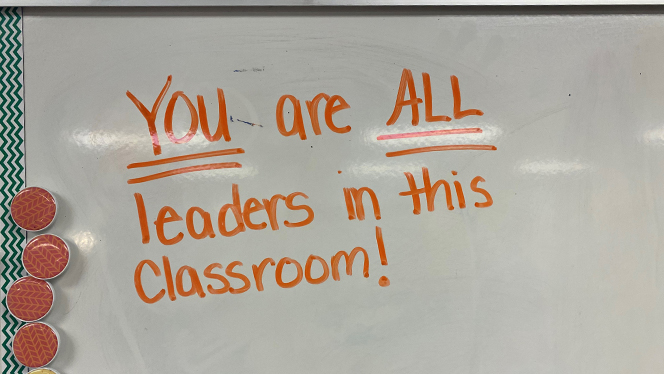 YOU are ALL
leaders in this
Classroom!